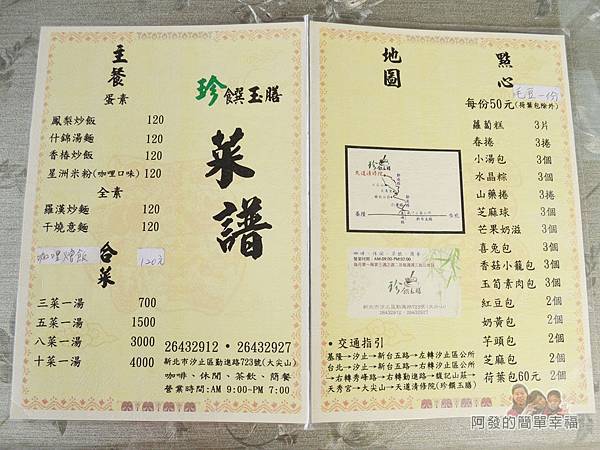 主餐
蛋素
鳳梨炒飯 120
什錦湯麵 120
香椿炒飯 120
星洲米粉(咖哩口味) 120
全素
羅漢炒麵 120
干燒意麵 120
咖哩燴飯 120元
合菜
三菜一湯 700
五菜一湯 1500
八菜一湯 3000
十菜一湯 4000
珍饌玉膳
菜譜
26432912・26432927
新北市汐止區勤進路723號(大尖山)
咖啡、休閒、茶飲、簡餐
營業時間:AM 9:00-PM 7:00
地圖
珍
天道清修院
基隆
珍饌玉膳
26432912 26432927
・交通指引
基隆→汐止→新台五路→左轉汐止區公所
台北→汐止→新台五路→右轉汐止區公所
→右轉秀峰路→右轉勤進路→馥記山莊→
天秀宮→大尖山→天道清修院(珍饌玉膳)
點心
毛豆一份
每份50元(荷葉包除外)
蘿蔔糕 3片
春捲 3捲
小湯包 3個
水晶粽 3個
山藥捲 3捲
芝麻球 3個
芒果奶滋 3個
喜兔包 3個
香菇小籠包 3個
玉筍素肉包 3個
紅豆包 2個
奶黃包 2個
芋頭包 2個
芝麻包 2個
荷葉包60元 2個
阿發的簡單幸福